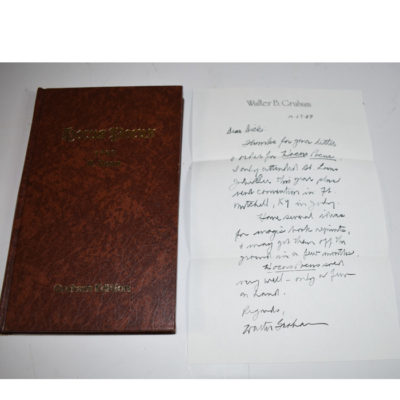 Hocus Pocus
Walter B. Graham
Dear
Thanks for your letter
& order for Hocus Pocus.
I only attended St. Louis
this year plus
convention in Ft
Mitchell, KY in July.
Have several ideas
for magic book reprints,
& may get them off the
ground in a few months.
Hocus Pocus sold
very well - only a few
on hand.
Regards,
Walter Graham